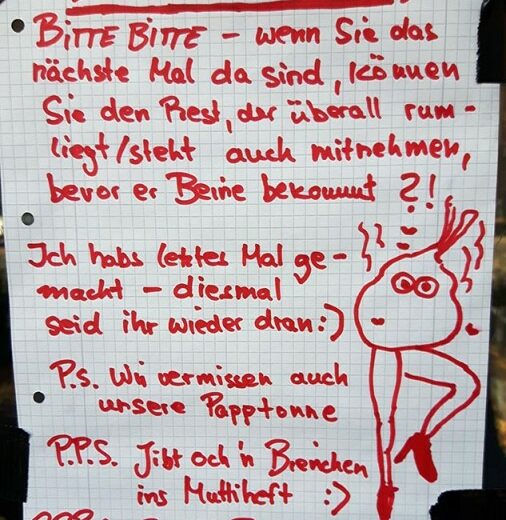 BITTE BITTE – wenn Sie das
nächste Mal da sind, können
Sie den Rest, der überall rum-
liegt/steht auch mitnehmen,
bevor er Beine bekommt ?!
Ich habs letztes Mal ge-
macht – diesmal
seid ihr wieder dran :)
P.S. Wir vermissen auch
unsere Papptonne
P.P.S. Jibt och 'n Bienchen
ins Muttiheft :)